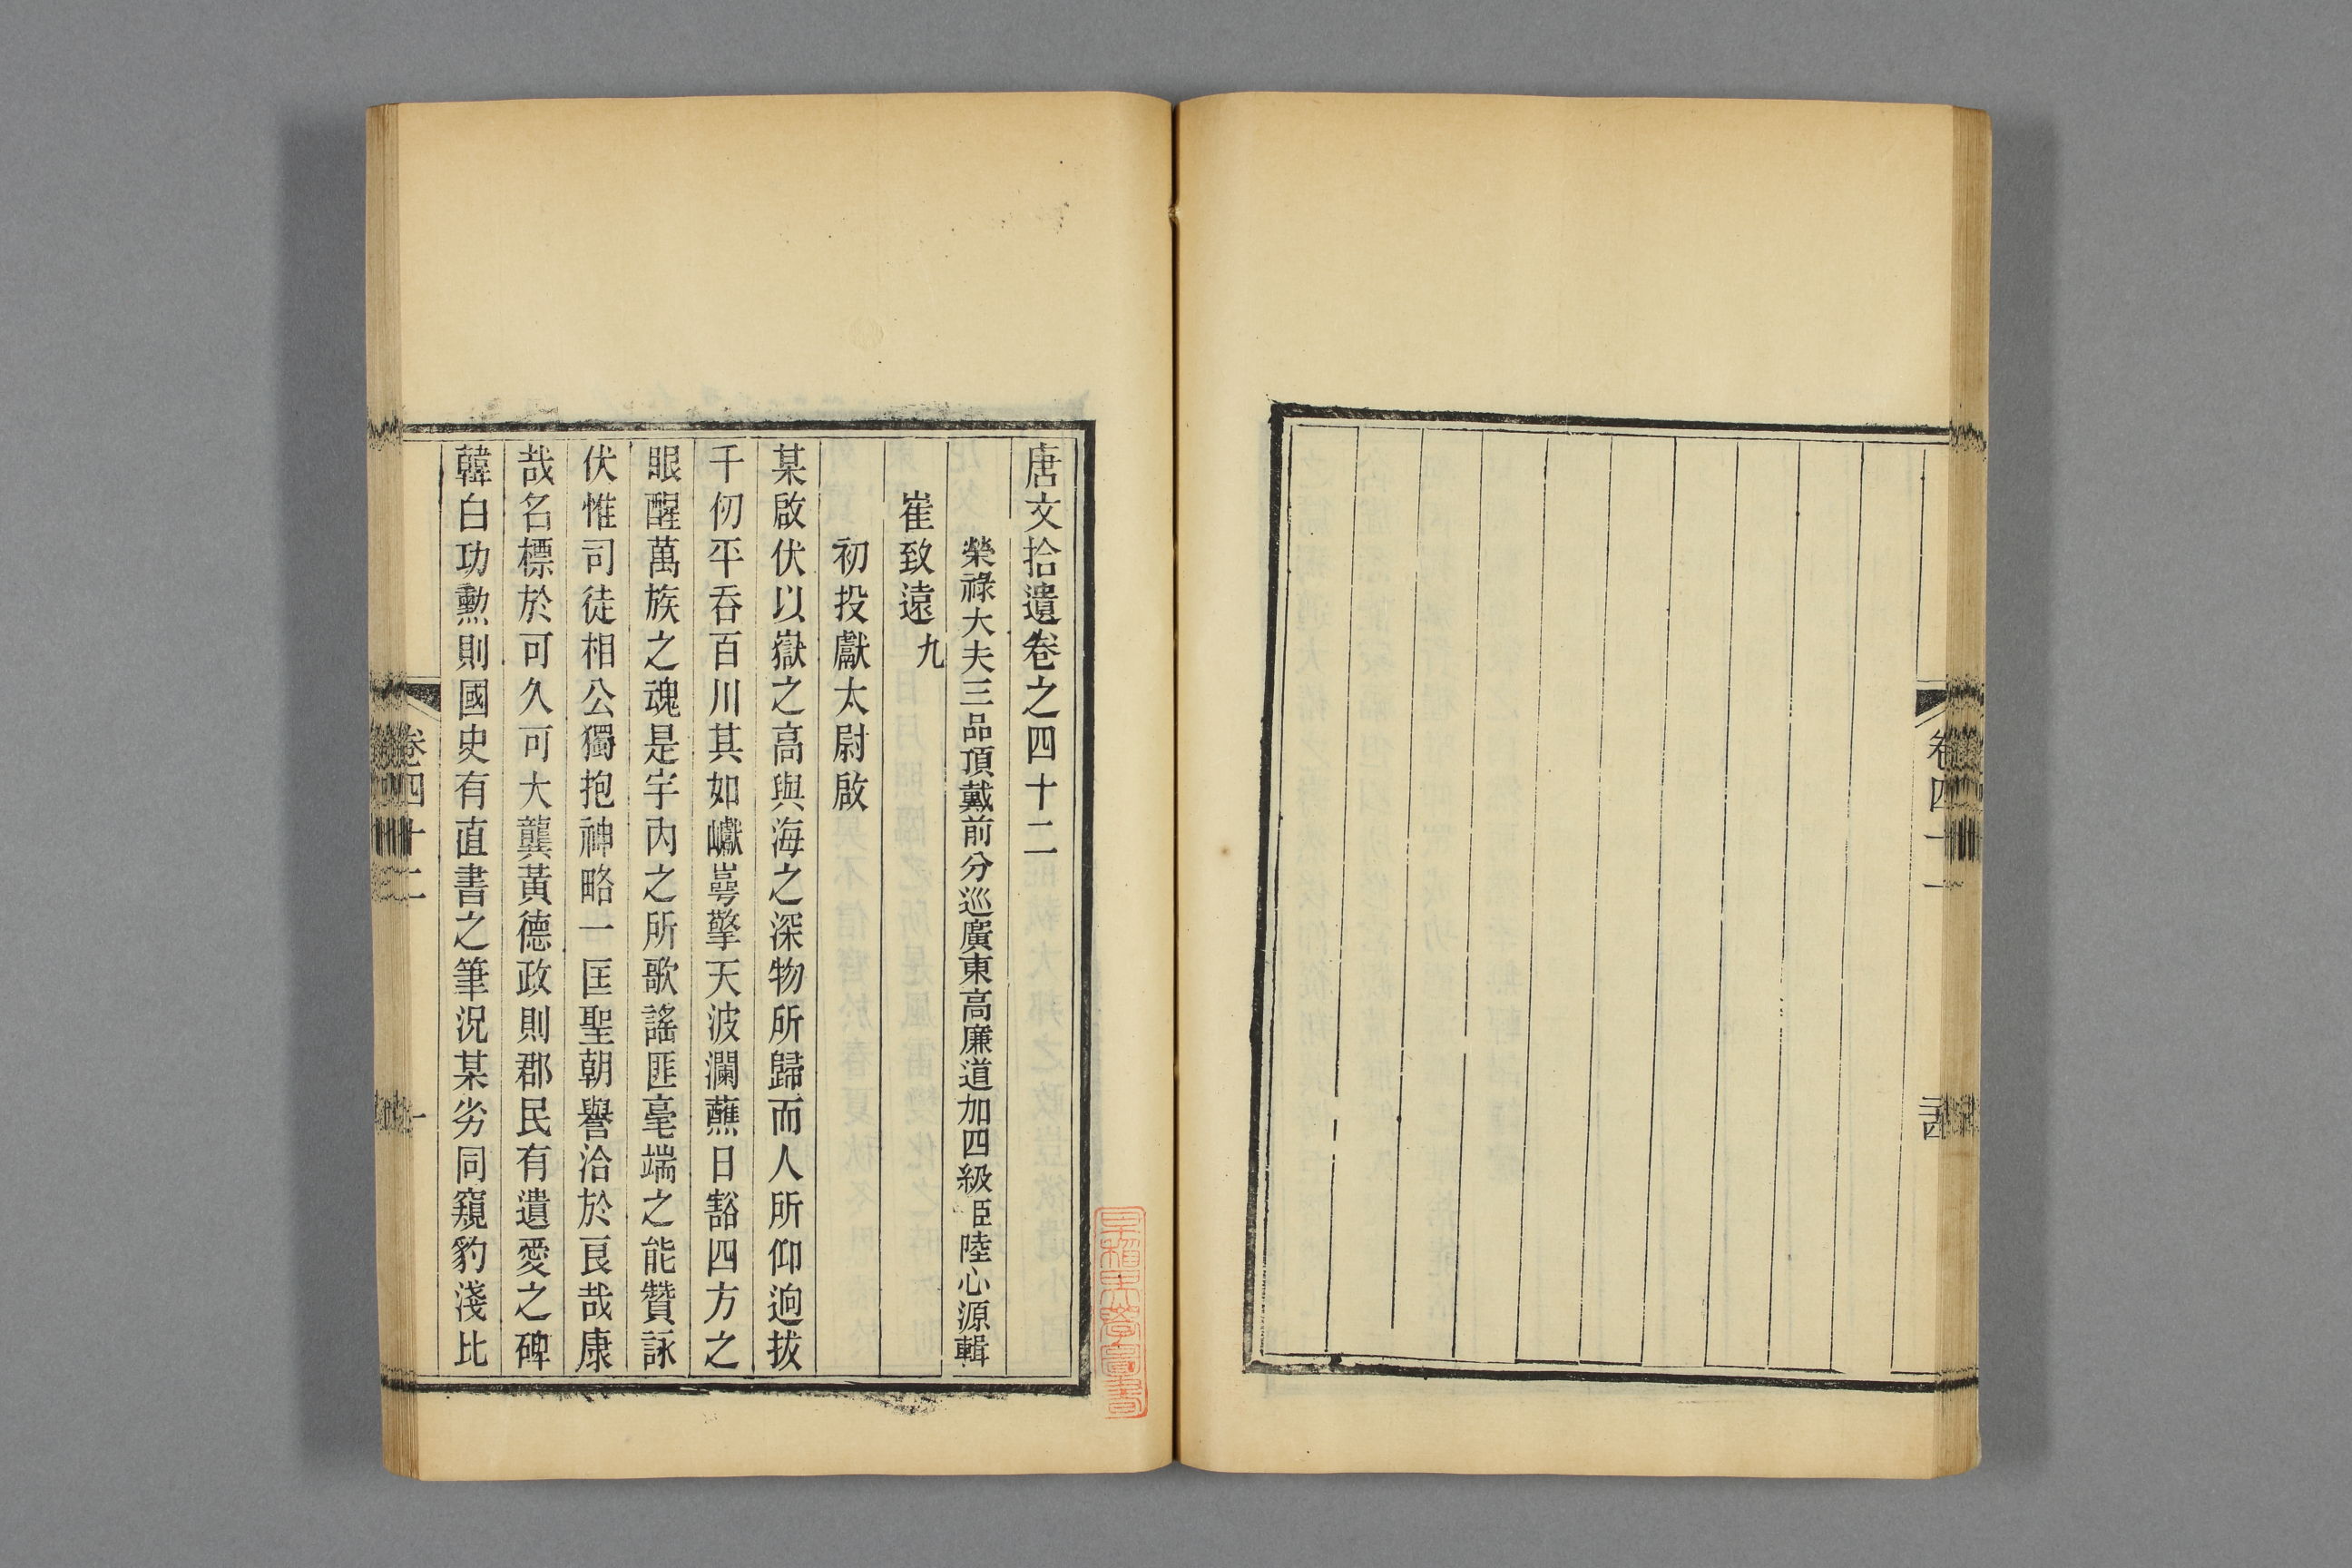 卷四十一
二十四
唐文拾遺卷之四十二
榮祿大夫三品頂戴前分巡廣東高廉道加四級臣陸心源輯
崔致遠九
初投獻太尉啟
某啟伏以嶽之高與海之深物所歸而人所仰逈拔
千仞平吞百川其如巘崿擎天波瀾蘸日豁四方之
眼醒萬族之魂是宇內之所歌謠匪毫端之能贊詠
伏惟司徒相公獨抱神略一匡聖朝譽洽於良哉康
哉名標於可久可大龔黃德政則郡民有遺愛之碑
韓白功勲則國史有直書之筆況某劣同窺豹淺比
卷四十二
一
早稻田大學圖書